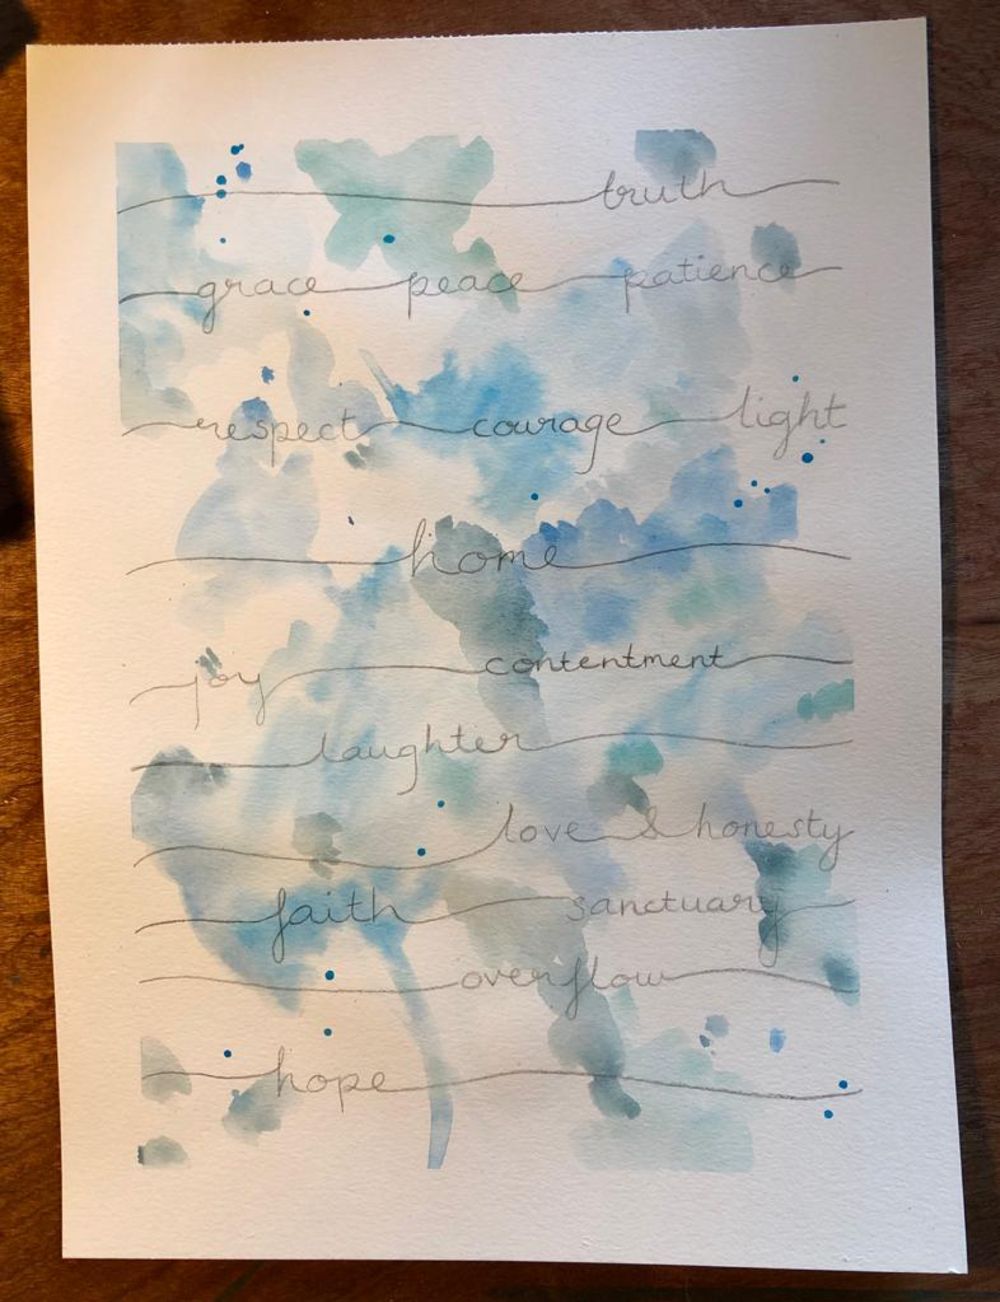 truth
grace peace patience
respect courage light
home
joy contentment
laughter
love & honesty
faith sanctuary
overflow
hope